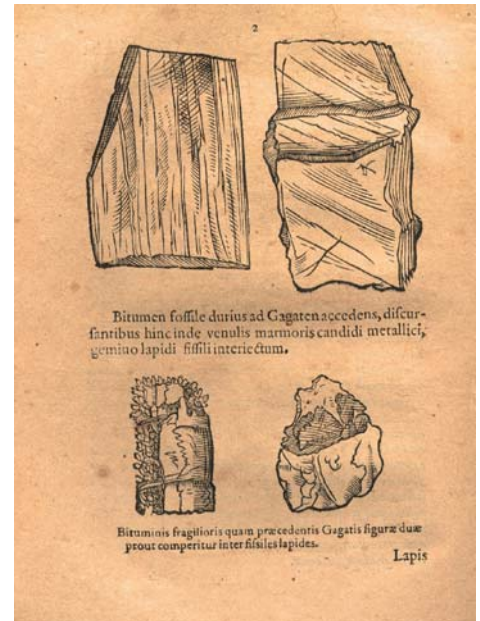 2
Bitumen fossile durius ad Gagaten accedens, discur-
santibus hinc inde venulis marmoris candidi metallici,
gemino lapidi fissili interiectum.
Bituminis fragilioris quam præcedentis Gagatis figuræ duæ
prout comperitur inter fissiles lapides.
Lapis